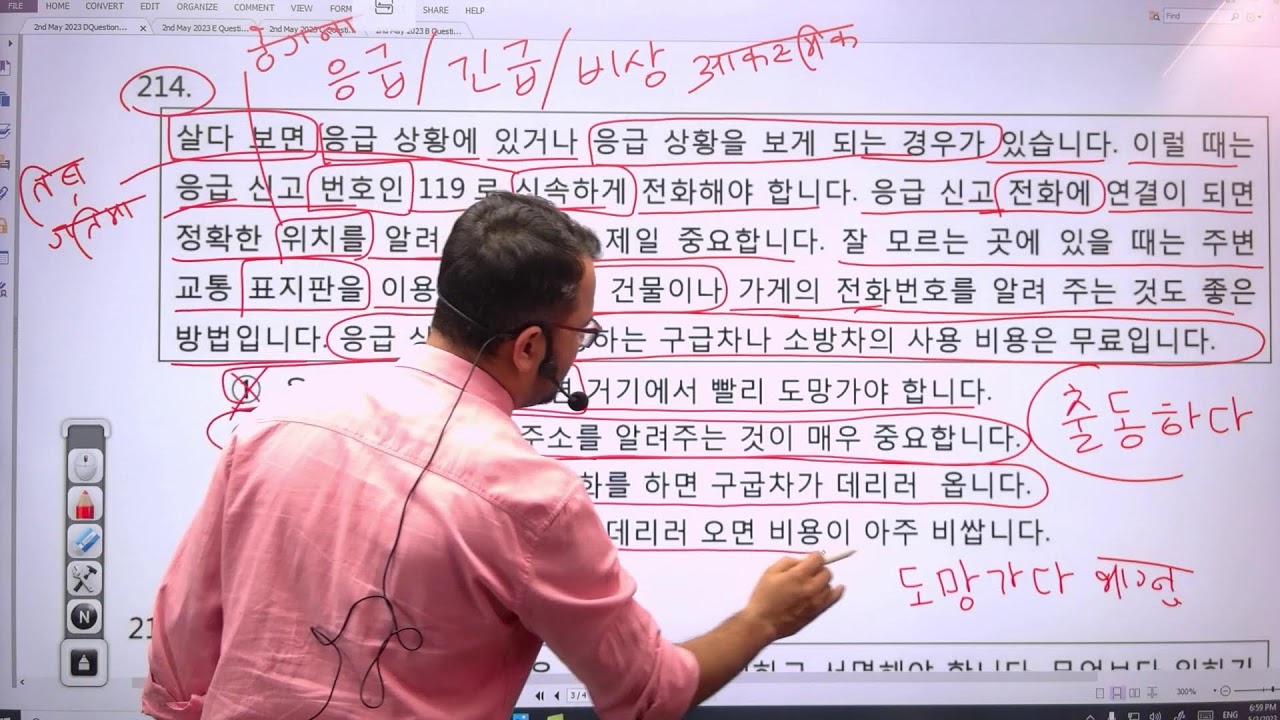 FILE HOME CONVERT EDIT ORGANIZE COMMENT VIEW FORM SHARE HELP
2nd May 2023 DQuestion... 2nd May 2023 E Questi... 2nd May 2023 B Questi...
Find
응급/긴급/비상
214.
살다 보면 응급 상황에 있거나 응급 상황을 보게 되는 경우가 있습니다. 이럴 때는
응급 신고 번호인 119 로 신속하게 전화해야 합니다. 응급 신고 전화에 연결이 되면
정확한 위치를 알려 제일 중요합니다. 잘 모르는 곳에 있을 때는 주변
교통 표지판을 이용 건물이나 가게의 전화번호를 알려 주는 것도 좋은
방법입니다. 응급 하는 구급차나 소방차의 사용 비용은 무료입니다.
① 거기에서 빨리 도망가야 합니다.
주소를 알려주는 것이 매우 중요합니다.
화를 하면 구굽차가 데리러 옵니다.
데리러 오면 비용이 아주 비쌉니다.
출동하다
도망가다
3/4
300%
ENG
6:59 PM